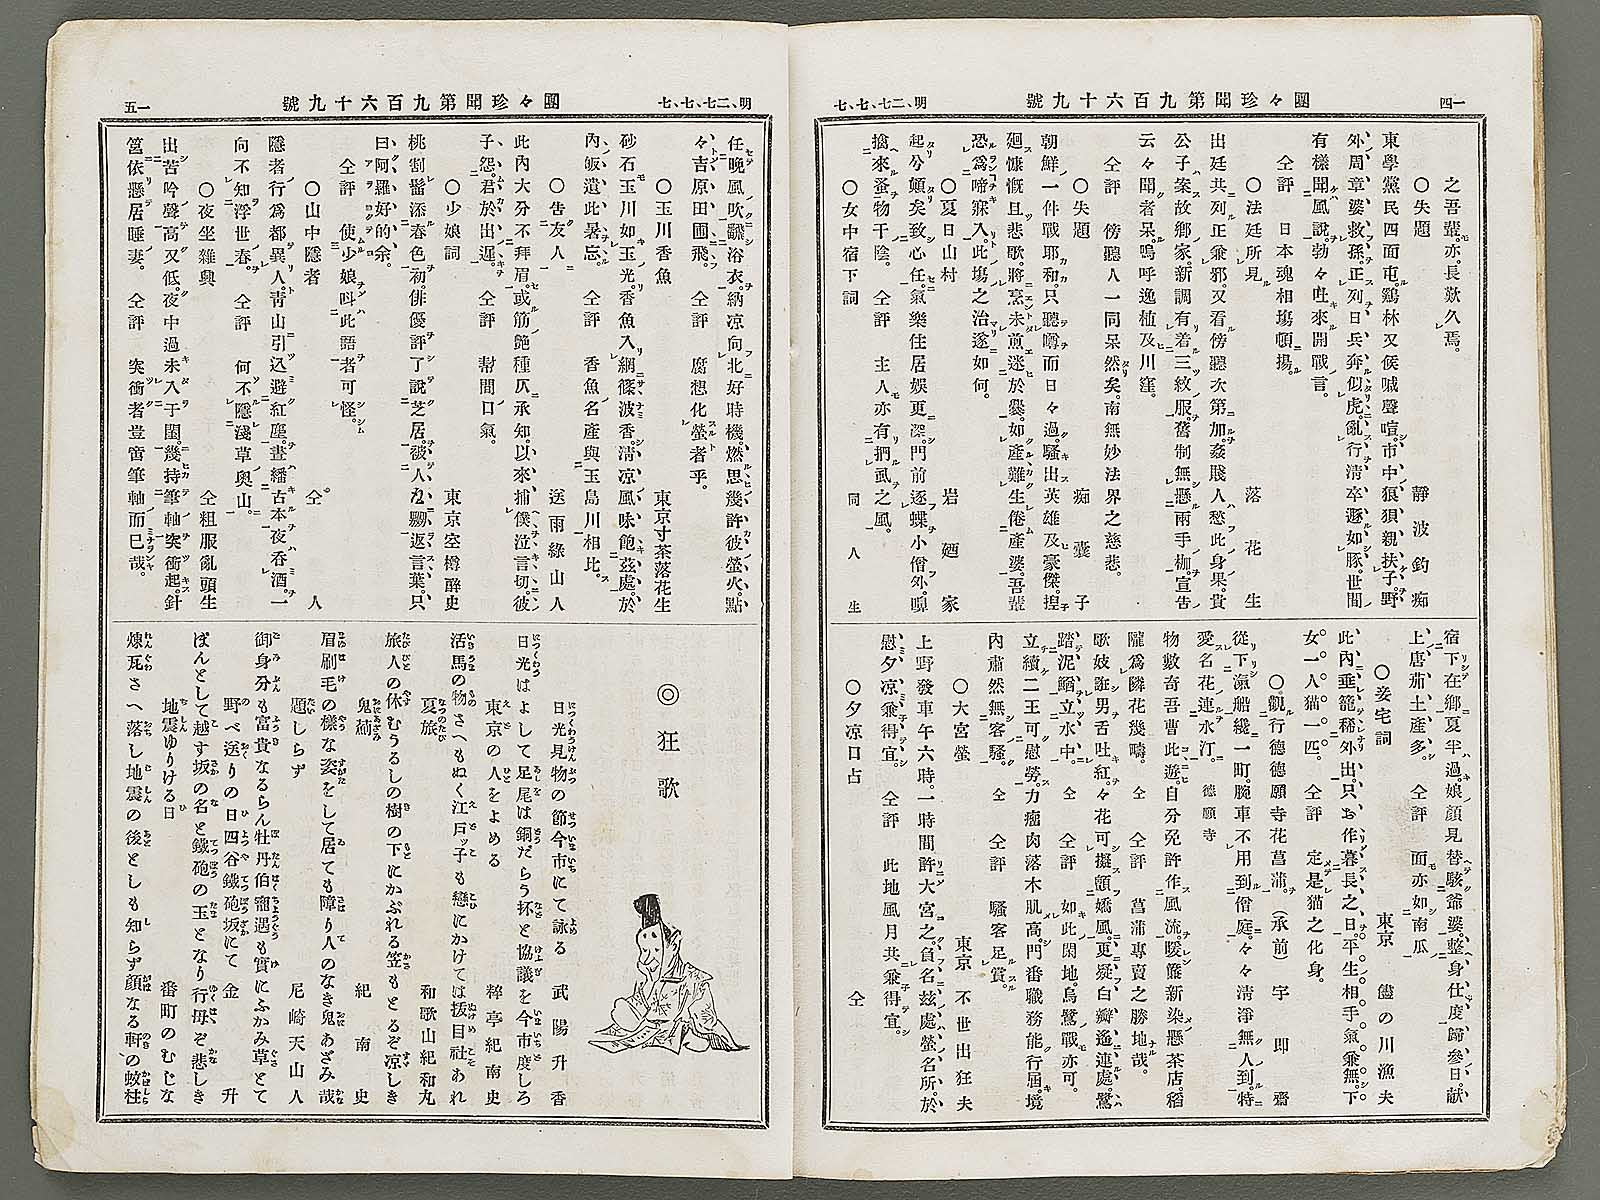 一四
團々珍聞第九百六十九號
明、二七、七、七
之吾輩。亦長歎久焉。
〇失題
靜波釣痴
東學黨民四面屯。鷄林又侯喊聲喧。市中狼狽親扶子。野
外周章婆救孫。正列日兵奔似虎。亂行清卒遯如豚。世間
有樣聞風說。勃々吐來開戰言。
仝評 日本魂相塲頓揚。
〇法廷所見
落花生
出廷共列正兼邪。又看傍聽次第加。姦賤人愁此身果。貴
公子案故鄉家。新調有着三紋服。舊制無懸兩手枷。宣告
云々聞者呆。嗚呼逸植及川窪。
仝評 傍聽人一同呆然矣。南無妙法界之慈悲。
〇失題
痴囊子
朝鮮一件戰耶和。只聽噂而日々過。騷出英雄及豪傑。捏
廻慷慨且悲歌。將烹未煎迷於爨。如產難生倦產婆。吾輩
恐爲啼寐入。此塲之治遂如何。
〇夏日山村
岩廼家
起兮頗矣致心任。氣樂住居娯更深。門前逐蝶小僧外。嗅
擒來蚤物干陰。 仝評 主人亦有捫虱之風。
〇女中宿下詞
同人生
宿下在鄉夏半過。娘顏見替駭爺婆。整身仕度歸參日。献
上唐茄土產多。 仝評 面亦如南瓜
〇妾宅詞
東京 儘の川漁夫
此內垂籠稀外出。只お作暮長之日。平生相手氣兼無。下
女一人猫一匹。 仝評 定是猫之化身。
〇觀行德德願寺花菖蒲。（承前） 宇即齋
從下瀛船纔一町。腕車不用到僧庭。々々淸淨無人到。特
愛名花連水汀。 德願寺
物數奇吾曹此遊。自分免許作風流。暖簾新染懸茶店。稻
隴爲隣花幾疇。 仝 仝評 菖蒲專賣之勝地哉。
歌妓誑男舌吐紅。々花可擬顏嬌風。更疑白瓣遙連處。鷺
踏泥鰌立水中。 仝 仝評 如此閑地。烏鷺戰亦可。
立續二王可慰勞。力瘤肉落木肌高。門番職務能行屆。境
內肅然無客騷。 仝 仝評 騷客足賞。
〇大宮螢
東京 不世出狂夫
上野發車午六時。一時間許大宮之。負名玆處螢名所。於
慰夕凉兼得宜。 仝評 此地風月共兼得宜。
〇夕凉口占
仝
明、二七、七、七
團々珍聞第九百六十九號
一五
任晚風吹飜浴衣。納凉向北好時機。燃思幾許彼螢火。點
々吉原田圃飛。 仝評 腐想化螢者乎。
〇玉川香魚
東京寸茶落花生
砂石玉川如玉光。香魚入網篠波香。淸凉風味飽玆處。於
內皈遣此暑忘。 仝評 香魚名產與玉島川相比。
〇吿友人
送雨綠山人
此內大分不拜眉。或筋飽種仄承知。以來捕僕泣言切。彼
子怨君於出遲。 仝評 幇間口氣。
〇少娘詞
東京空樽醉史
桃割髷添春色初。俳優評了說芝居。被人嬲返言葉。只
曰阿羅好的余。
仝評 使少娘呌此語者可怪。
〇山中隱者
仝人
隱者行爲都異人。青山引込避紅塵。晝繙古本夜呑酒。一
向不知浮世春。 仝評 何不隱淺草奧山。
〇夜坐雜興
仝粗服亂頭生
出苦吟聲高又低。夜中過未入于閨。幾持筆軸突衝起。針
筥依懸居睡妻。 仝評 突衝者豈啻筆軸而已哉。
◎狂歌
日光見物の節今市にて詠る 武陽升香
日光はよして足尾は銅だらう抔と協議を今市度しろ
東京の人をよめる 粹亭紀南史
活馬の物さへもぬく江戸ッ子も戀にかけては拔目社あれ
夏旅 和歌山紀和丸
旅人の休むうるしの樹の下にかぶれる笠もとるぞ凉しき
鬼薊 紀南史
眉刷毛の樣な姿をして居ても障り人のなき鬼あざみ哉
題しらず 尼崎天山人
御身分も富貴なるらん牡丹伯寵遇も實にふかみ草とて
野べ送りの日四谷鐵砲坂にて 金升
ぽんとして越す坂の名と鐵砲の玉となり行母ぞ悲しき
地震ゆりける日 番町のむじな
煉瓦さへ落し地震の後としも知らず顏なる軒の蚊柱